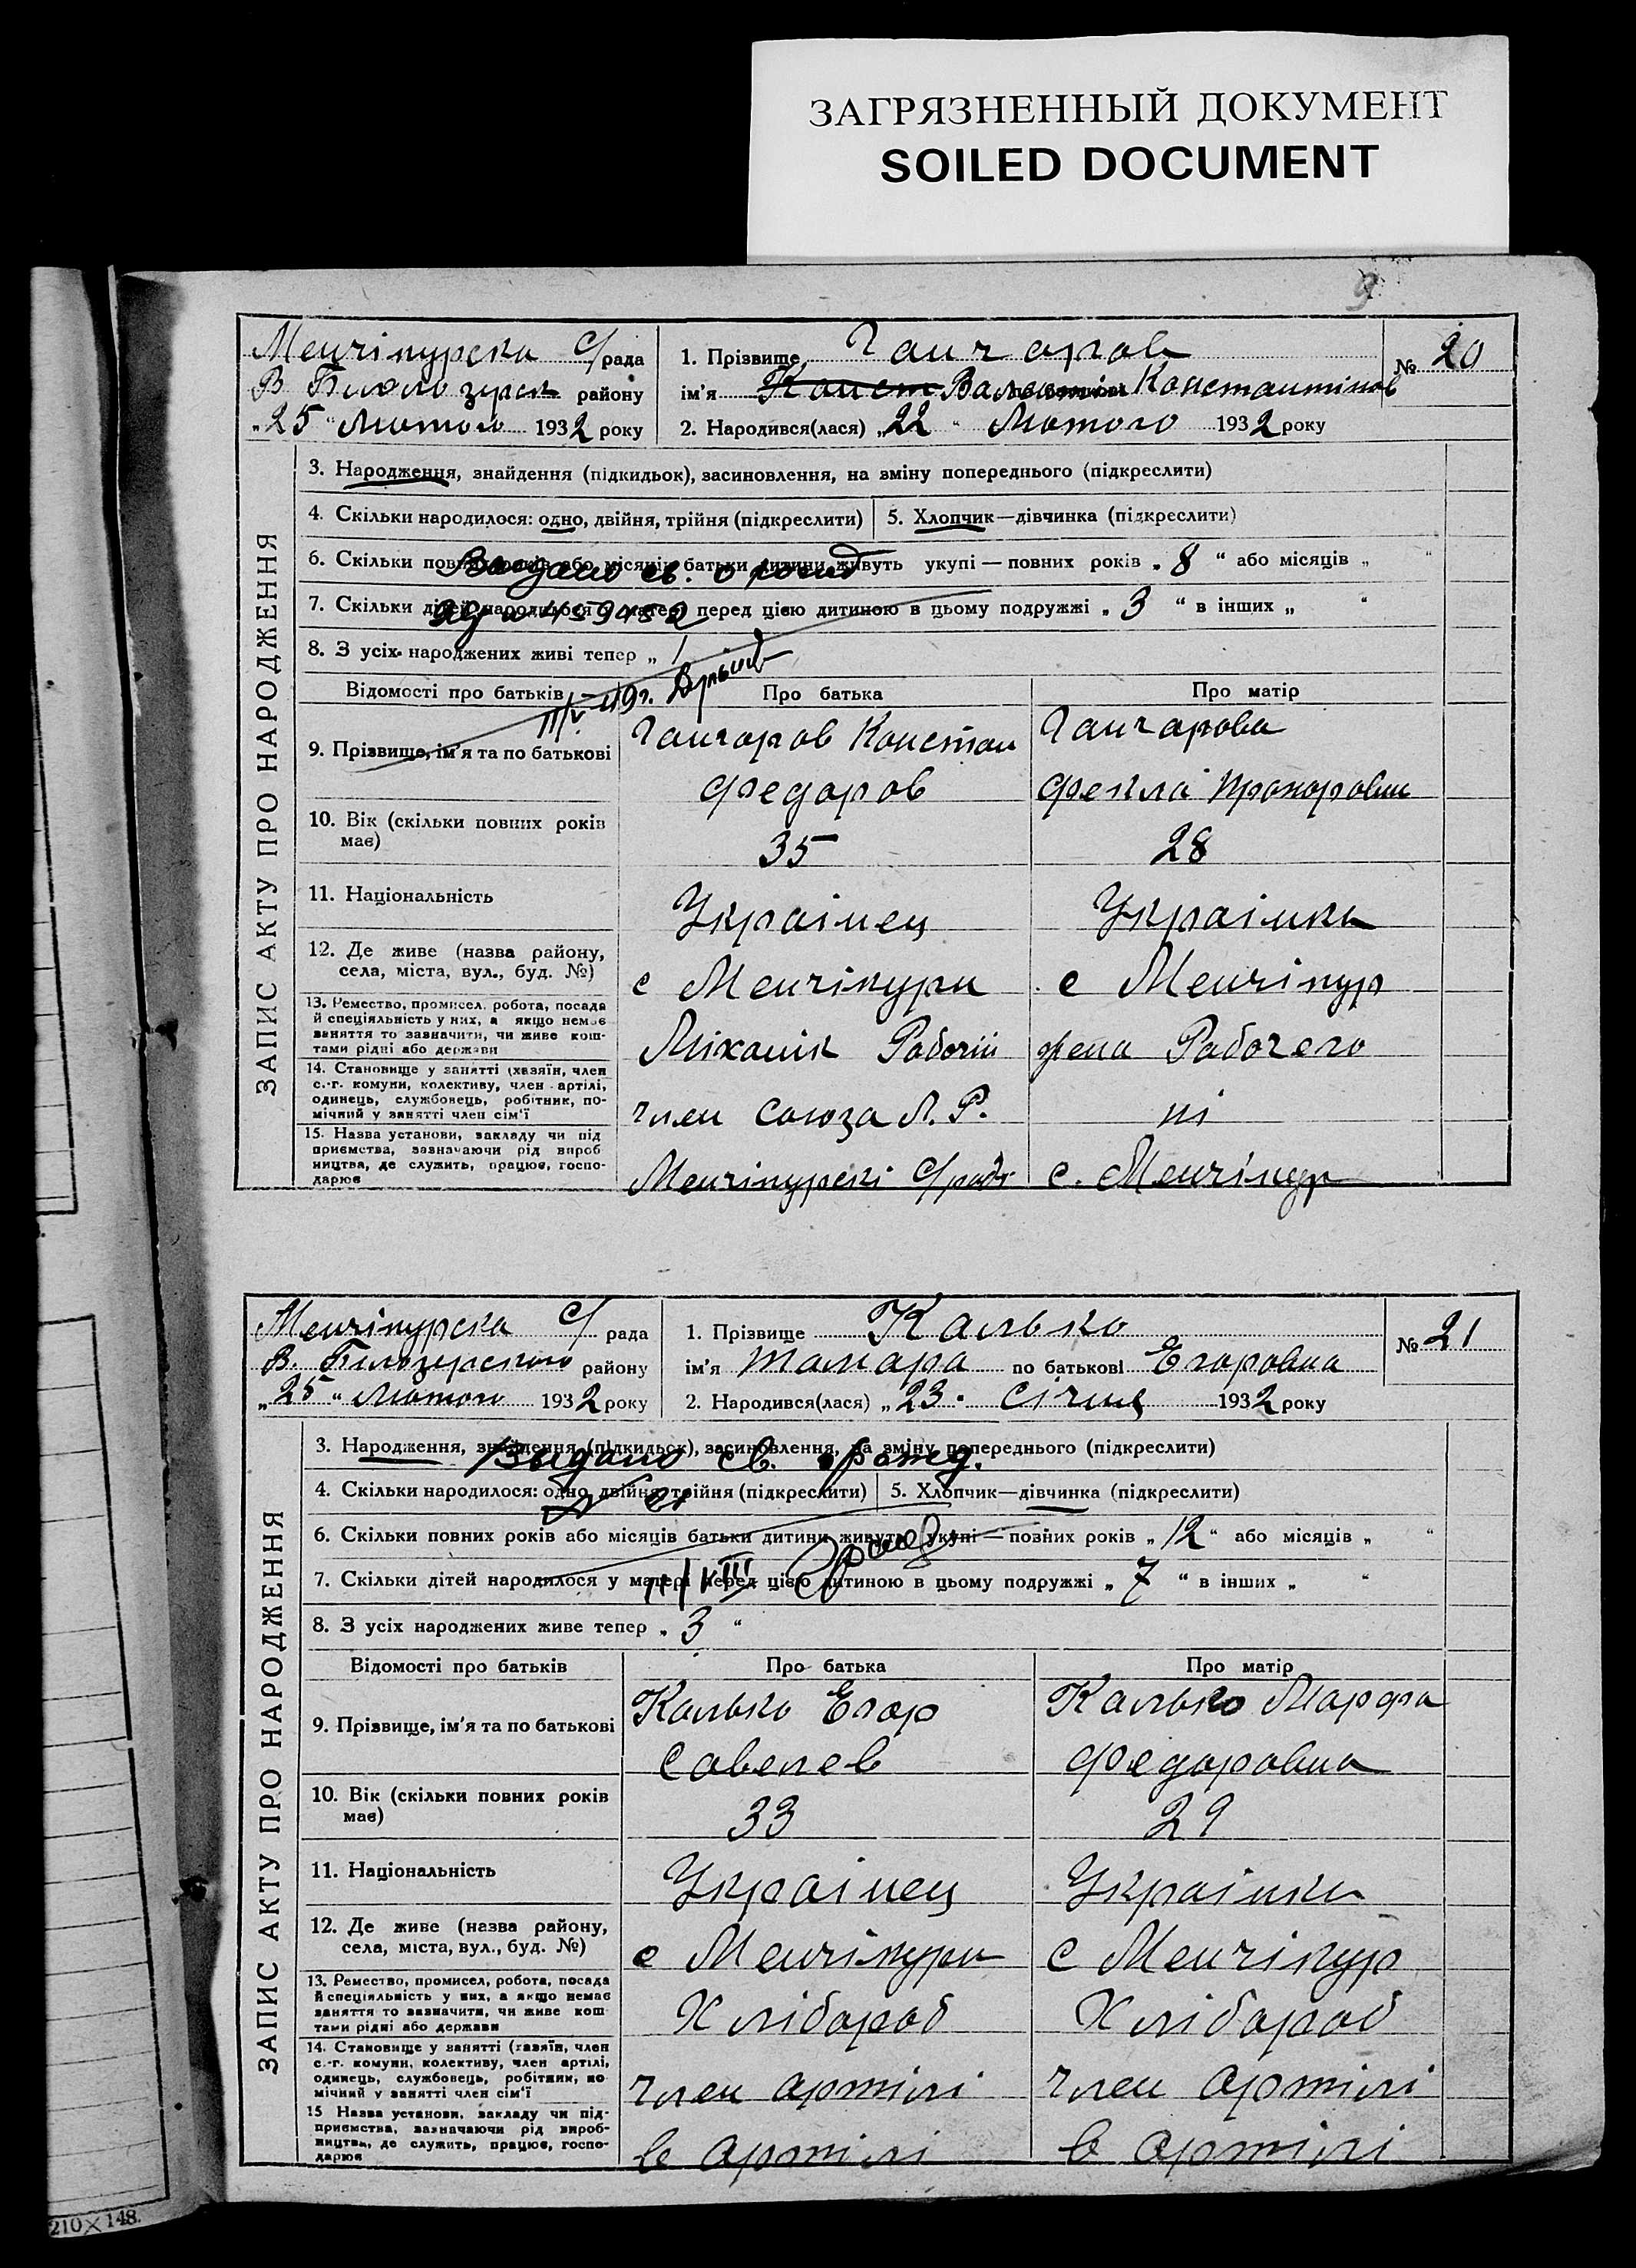 ЗАГРЯЗНЕННЫЙ ДОКУМЕНТ
SOILED DOCUMENT
9
ЗАПИС АКТУ ПРО НАРОДЖЕННЯ
Менчікурска С/рада
В. Білозерск району
„25“ Лютого 1932 року
1. Прізвище Ганчаров
№ 20
ім'я Конст Валентін Константінов
2. Народився(лася) „22“ Лютого 1932 року
3. Народження, знайдення (підкидьок), засиновлення, на зміну попереднього (підкреслити)
4. Скільки народилося: одно, двійня, трійня (підкреслити)
5. Хлопчик—дівчинка (підкреслити)
6. Скільки повних років або місяців батьки дитини живуть укупі — повних років „8“ або місяців „ “
7. Скільки дітей народилося у матері перед цією дитиною в цьому подружжі „3“ в інших „ “
8. З усіх народжених живі тепер „1
Видано св. о рожд
Відомості про батьків
Про батька
Про матір
9. Прізвище, ім'я та по батькові
Ганчаров Констан
Федоров
Ганчарова
Фекла Прохоровн
10. Вік (скільки повних років має)
35
28
11. Національність
Украінец
Украінка
12. Де живе (назва району, села, міста, вул., буд. №)
с Менчікури
с Менчікур
13. Ремество, промисел, робота, посада
й спеціяльність у них, а якщо немає
заняття то зазначити, чи живе кош-
тами рідні або держави
Міханік Рабочій
жена Рабочего
14. Становище у занятті (хазяїн, член
с.-г. комуни, колективу, член артілі,
одинець, службовець, робітник, по-
мічний у занятті член сім'ї
член Союза Л. Р.
ні
15. Назва установи, закладу чи під
приємства, зазначаючи рід вироб
ництва, де служить, працює, госпо-
дарює
Менчікурскі С/раді
с. Менчікур
ЗАПИС АКТУ ПРО НАРОДЖЕННЯ
Менчікурска С/ рада
В. Білозерского району
„25“ Лютого 1932 року
1. Прізвище Калько
№ 21
ім'я Тамара по батькові Егоровна
2. Народився(лася) „23“ Січня 1932 року
3. Народження, знайдення (підкидьок), засиновлення, на зміну попереднього (підкреслити)
Видано св. о рожд.
4. Скільки народилося: одно, двійня, трійня (підкреслити)
5. Хлопчик—дівчинка (підкреслити)
6. Скільки повних років або місяців батьки дитини живуть укупі — повних років „12“ або місяців „ “
7. Скільки дітей народилося у матері перед цією дитиною в цьому подружжі „7“ в інших „ “
8. З усіх народжених живе тепер „3“
Відомості про батьків
Про батька
Про матір
9. Прізвище, ім'я та по батькові
Калько Егор
Савелев
Калько Марфа
Федоровна
10. Вік (скільки повних років має)
33
29
11. Національність
Украінец
Украінка
12. Де живе (назва району, села, міста, вул., буд. №)
с Менчікури
с Менчікур
13. Ремество, промисел, робота, посада
й спеціяльність у них, а якщо немає
заняття то зазначити, чи живе кош-
тами рідні або держави
Хлібороб
Хлібороб
14. Становище у занятті (хазяїн, член
с.-г. комуни, колективу, член артілі,
одинець, службовець, робітник, по-
мічний у занятті член сім'ї
член артілі
член артілі
15 Назва установи, закладу чи під-
приємства, зазначаючи рід вироб-
ництва, де служить, працює, госпо-
дарює
в артілі
в артілі
210×148.